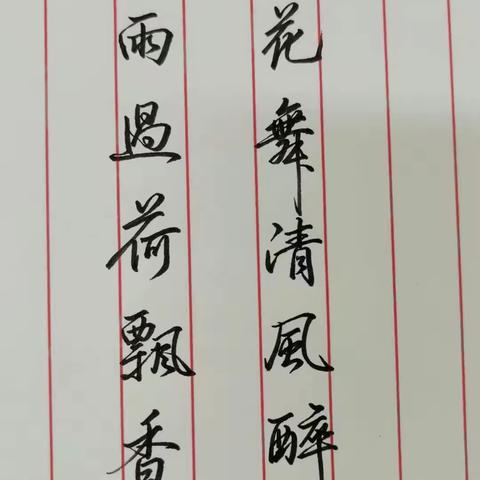 花舞清風醉
雨過荷飄香